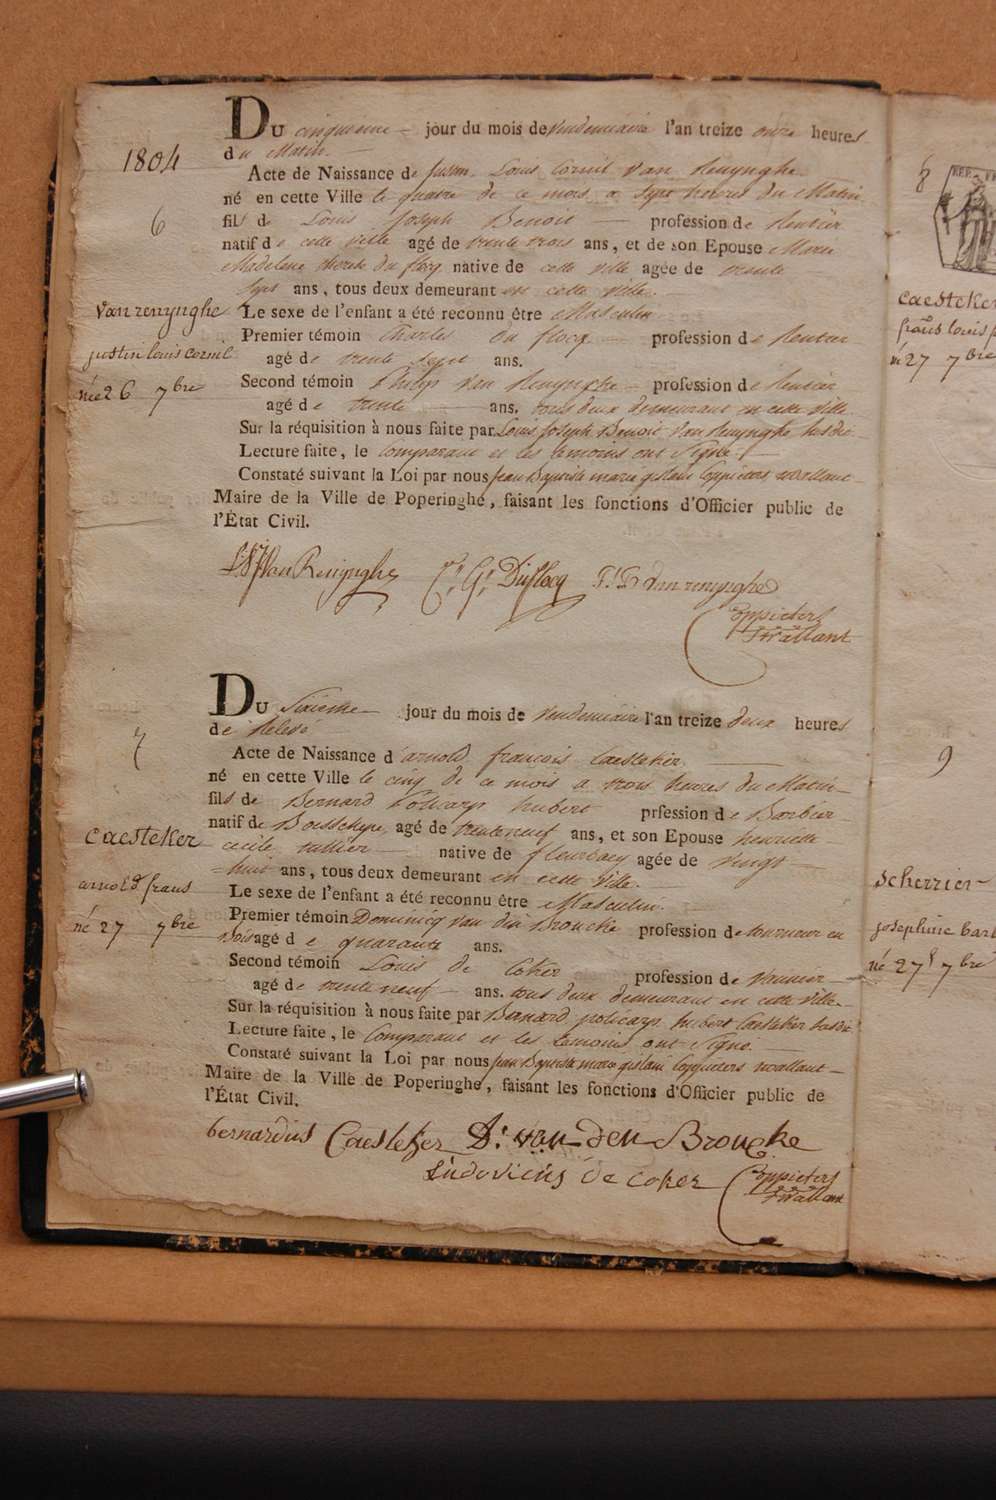 1804
Du cinquieme jour du mois de Vendemiaire l'an treize onze heures
du Matin
Acte de Naissance de Justin Louis Cornil Van Renynghe
né en cette Ville le quatre de ce mois a Sept heures du Matin
6
fils de Louis Joseph Benoit profession de Rentier
natif de cette Ville agé de trente trois ans, et de son Epouse Marie
Madelene therese du flocq native de cette Ville agée de trente
Sept ans, tous deux demeurant en cette Ville.
van renynghe
Le sexe de l'enfant a été reconnu être Masculin
Premier témoin Charles du flocq profession de Rentier
justin louis cornil
agé de trente Sept ans.
née 26 7bre
Second témoin Philip Van Renynghe profession de Rentier
agé de trente ans. tous deux demeurant en cette Ville
Sur la réquisition à nous faite par Louis Joseph Benoit Van Renynghe susdit
Lecture faite, le Comparant et les temoins ont Signé.
Constaté suivant la Loi par nous Jean Baptiste marie gislain Coppieters wallant
Maire de la Ville de Poperinghe, faisant les fonctions d'Officier public de
l'État Civil.
Van Renynghe C: G: Duflocq Van renynghe
Coppieters
Wallant
Du Sixieme jour du mois de Vendemiaire l'an treize deux heures
de Relevé
7
Acte de Naissance d'arnold françois Caesteker.
né en cette Ville le cinq de ce mois a trois heures du Matin
fils de Bernard Policarp hubert prfession de Barbier
natif de Boesschepe agé de trenteneuf ans, et son Epouse henriette
caesteker
cecile tullier native de fleurbaey agée de vingt
huit ans, tous deux demeurant en cette Ville.
arnold frans
Le sexe de l'enfant a été reconnu être Masculin.
né 27 7bre
Premier témoin Dominicq Van den Broucke profession de tourneur en
bois agé de quarante ans.
Second témoin Louis de Coker profession de Vannier
agé de trente neuf ans. tous deux demeurant en cette Ville.
Sur la réquisition à nous faite par Bernard policarp hubert Caesteker susdit
Lecture faite, le Comparant et les temoins ont Signé.
Constaté suivant la Loi par nous Jean Baptiste marie gislain Coppieters wallant
Maire de la Ville de Poperinghe, faisant les fonctions d'Officier public de
l'État Civil.
bernardus Caesteker D: van den Broucke
Ludovicus de Coker Coppieters
Wallant
8
REP. FR
caesteker
frans louis
né 27 7bre
9
scherrier
josephine barb
né 27 7bre